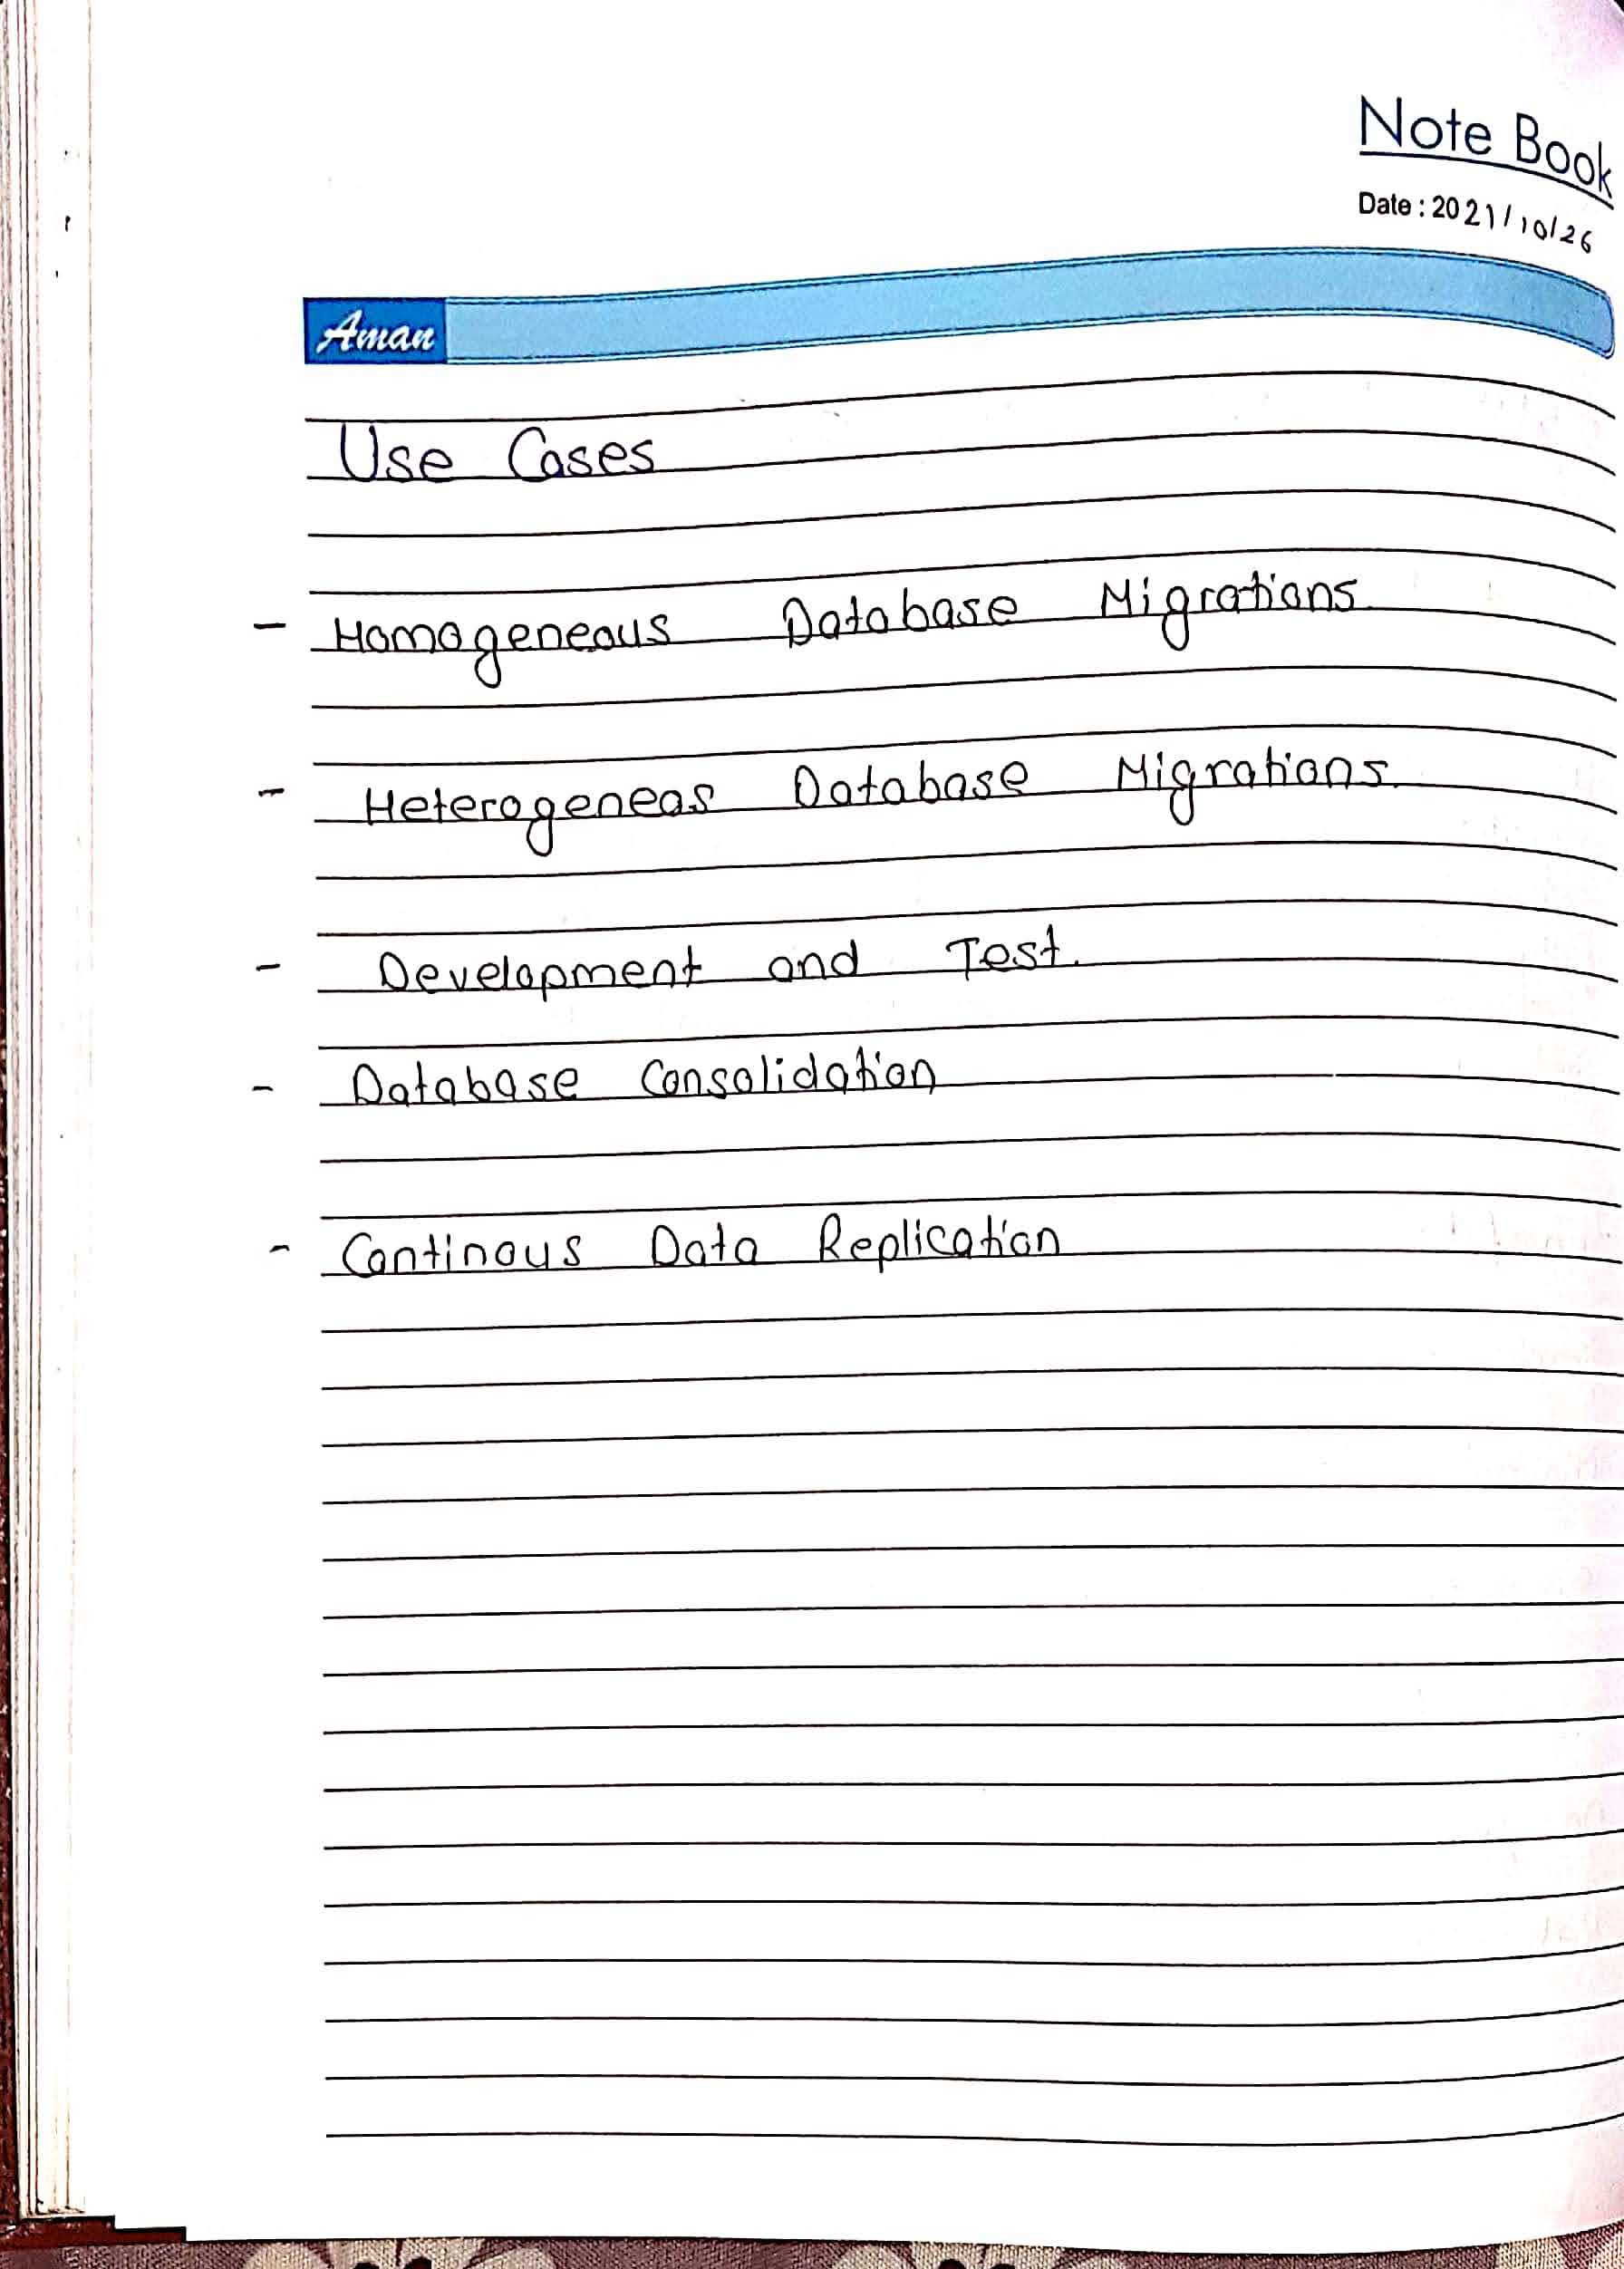 Note Book
Date : 2021/10/26
Aman
Use Cases
- Homogeneous Database Migrations.
- Heterogeneas Database Migrations.
- Development and Test.
- Database Consolidation
- Continous Data Replication